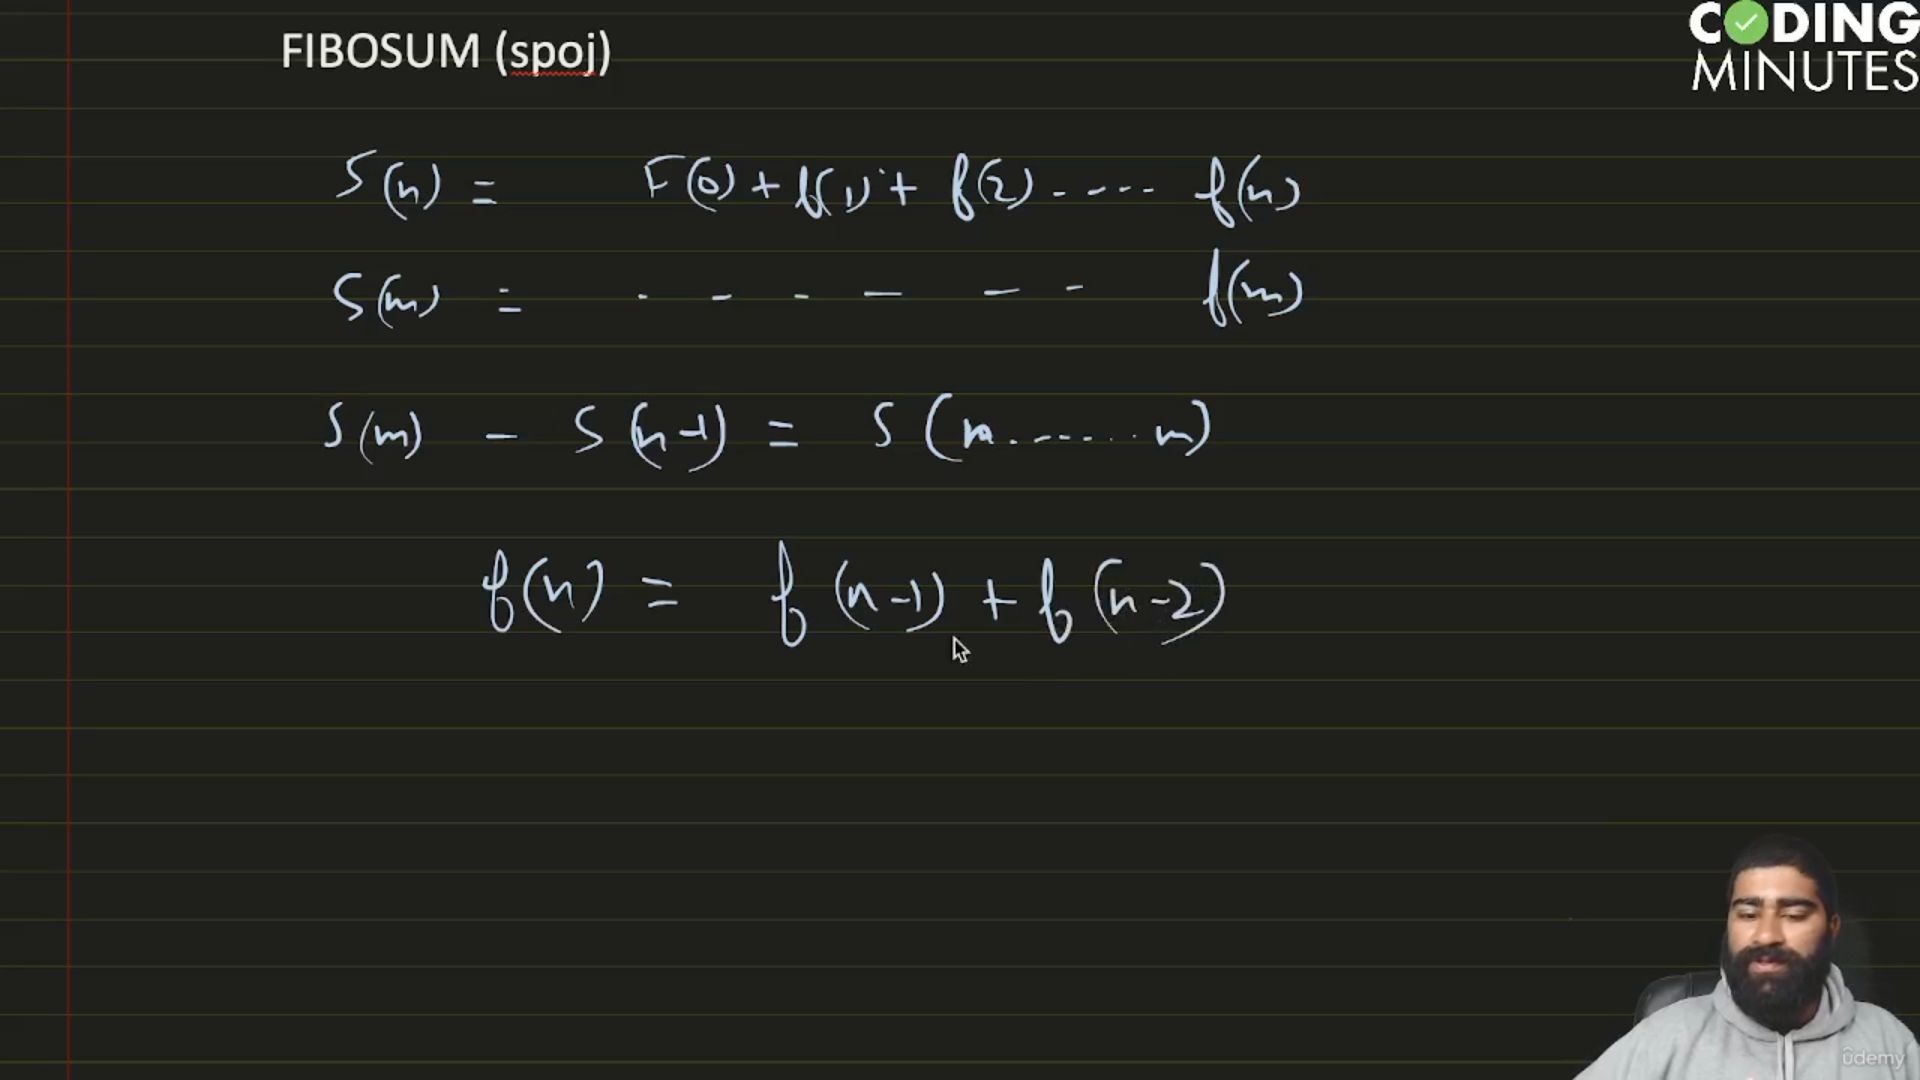 FIBOSUM (spoj)
CODING
MINUTES
S(n) = F(0) + f(1) + f(2) ..... f(n)
S(m) = . - - - - - f(m)
S(m) - S(n-1) = S(n.......m)
f(n) = f(n-1) + f(n-2)
ûdemy